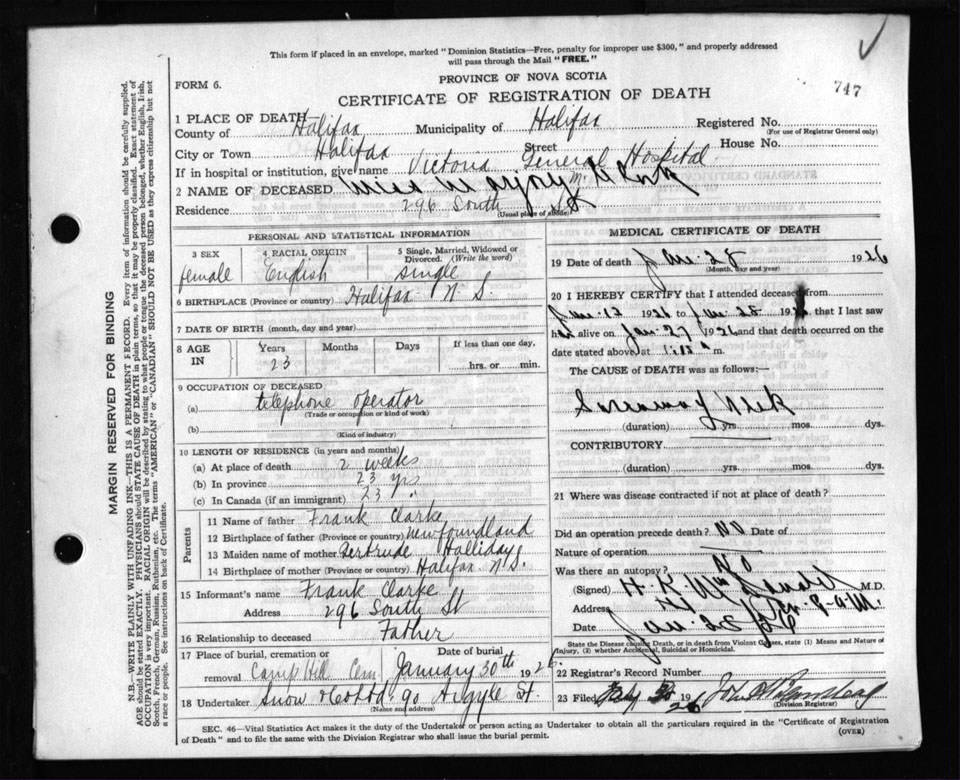 This form if placed in an envelope, marked "Dominion Statistics—Free, penalty for improper use $300," and properly addressed
will pass through the Mail "FREE."
PROVINCE OF NOVA SCOTIA
747
FORM 6.
CERTIFICATE OF REGISTRATION OF DEATH
1 PLACE OF DEATH
County of Halifax Municipality of Halifax Registered No.
(For use of Registrar General only)
City or Town Halifax Street House No.
If in hospital or institution, give name Victoria General Hospital
2 NAME OF DECEASED Miss Marjory
Residence 296 South St
(Usual place of abode)
PERSONAL AND STATISTICAL INFORMATION
3 SEX female
4 RACIAL ORIGIN English
5 Single, Married, Widowed or Divorced. (Write the word) single
6 BIRTHPLACE (Province or country) Halifax N S.
7 DATE OF BIRTH (month, day and year)
8 AGE IN Years 23 Months Days If less than one day, hrs. or min.
9 OCCUPATION OF DECEASED
(a) telephone operator
(Trade or occupation or kind of work)
(b)
(Kind of industry)
10 LENGTH OF RESIDENCE (in years and months)
(a) At place of death 2 weeks
(b) In province 23 yrs
(c) In Canada (if an immigrant) 23 "
Parents
11 Name of father Frank Clarke
12 Birthplace of father (Province or country) Newfoundland
13 Maiden name of mother Gertrude Halliday
14 Birthplace of mother (Province or country) Halifax N.S.
15 Informant's name Frank Clarke
Address 296 South St
16 Relationship to deceased Father
17 Place of burial, cremation or removal Camp Hill Cem. Date of burial January 30th 1926.
18 Undertaker Snow 90 Argyle St.
(Name and address)
MEDICAL CERTIFICATE OF DEATH
19 Date of death Jan. 28 1926
(Month, day and year)
20 I HEREBY CERTIFY that I attended deceased from
Jan. 12 1926 to Jan 28 192 that I last saw
h alive on Jan. 27 1926 and that death occurred on
date stated above, at m.
The CAUSE of DEATH was as follows:—
(duration) yrs. mos. dys.
CONTRIBUTORY
(duration) yrs. mos. dys.
21 Where was disease contracted if not at place of death?
Did an operation precede death? No Date of
Nature of operation
Was there an autopsy? No
(Signed) H. K. M.D.
Address
Date Jan. 28
State the Disease causing Death, or in death from Violent Causes, state (1) Means and Nature of
Injury, (2) whether Accidental, Suicidal or Homicidal.
22 Registrar's Record Number
23 Filed 19 26
(Division Registrar)
SEC. 46—Vital Statistics Act makes it the duty of the Undertaker or person acting as Undertaker to obtain all the particulars required in the "Certificate of Registration
of Death" and to file the same with the Division Registrar who shall issue the burial permit.
(OVER)
MARGIN RESERVED FOR BINDING
N.B.—WRITE PLAINLY WITH UNFADING INK—THIS IS A PERMANENT RECORD. Every item of information should be carefully supplied.
AGE should be stated EXACTLY. PHYSICIANS should STATE CAUSE OF DEATH in plain terms, so that it may be properly classified. Exact statement of
OCCUPATION is very important. RACIAL ORIGIN will be described by stating to what people or tongue the deceased person belonged, whether English, Irish,
Scotch, French, German, Russian, Ruthenian, etc. The terms "AMERICAN" or "CANADIAN" SHOULD NOT BE USED as they express citizenship but not
a race or people. See instructions on back of Certificate.